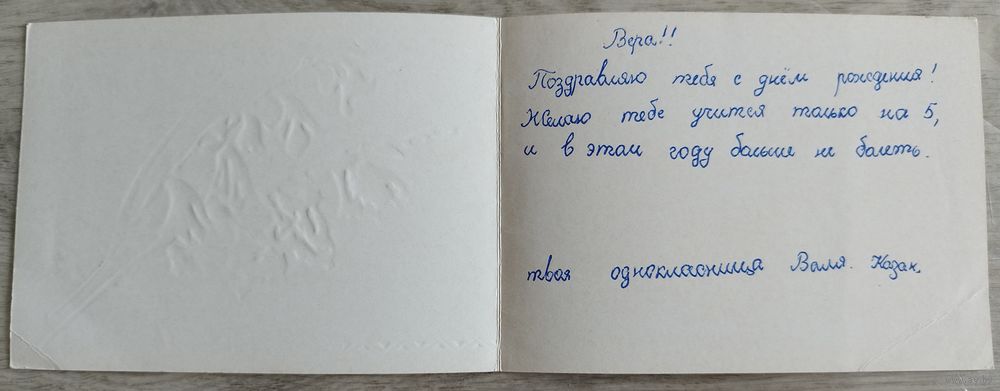 Вера!!
Поздравляю тебя с днём рождения!
Желаю тебе учится только на 5,
и в этом году больше не болеть.
твоя однокласница Валя. Казак.